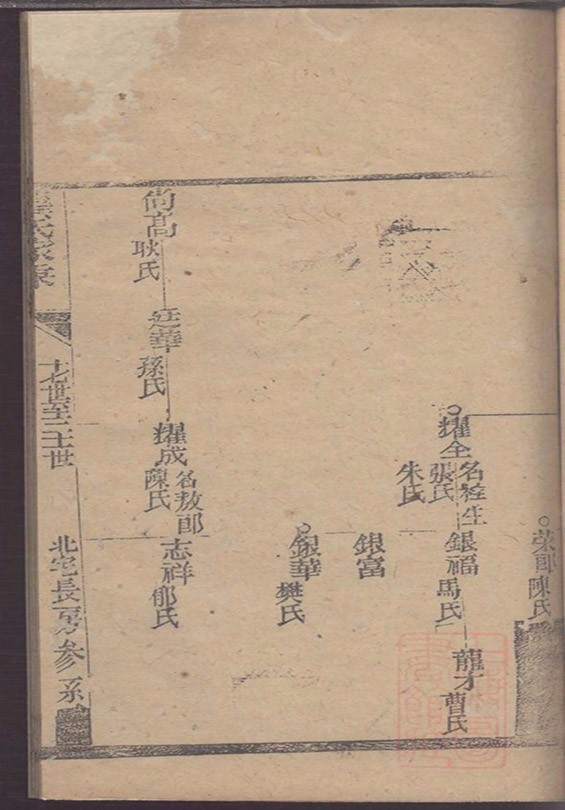 榮郎 陳氏
耀全 名銓生
張氏
朱氏
銀福 馬氏
龍才 曹氏
銀富
銀華 樊氏
尚高 耿氏
廷華 孫氏
耀成 名敖郎
陳氏
志祥 郁氏
氏家乘
十七世至二十世
北宅長房參系